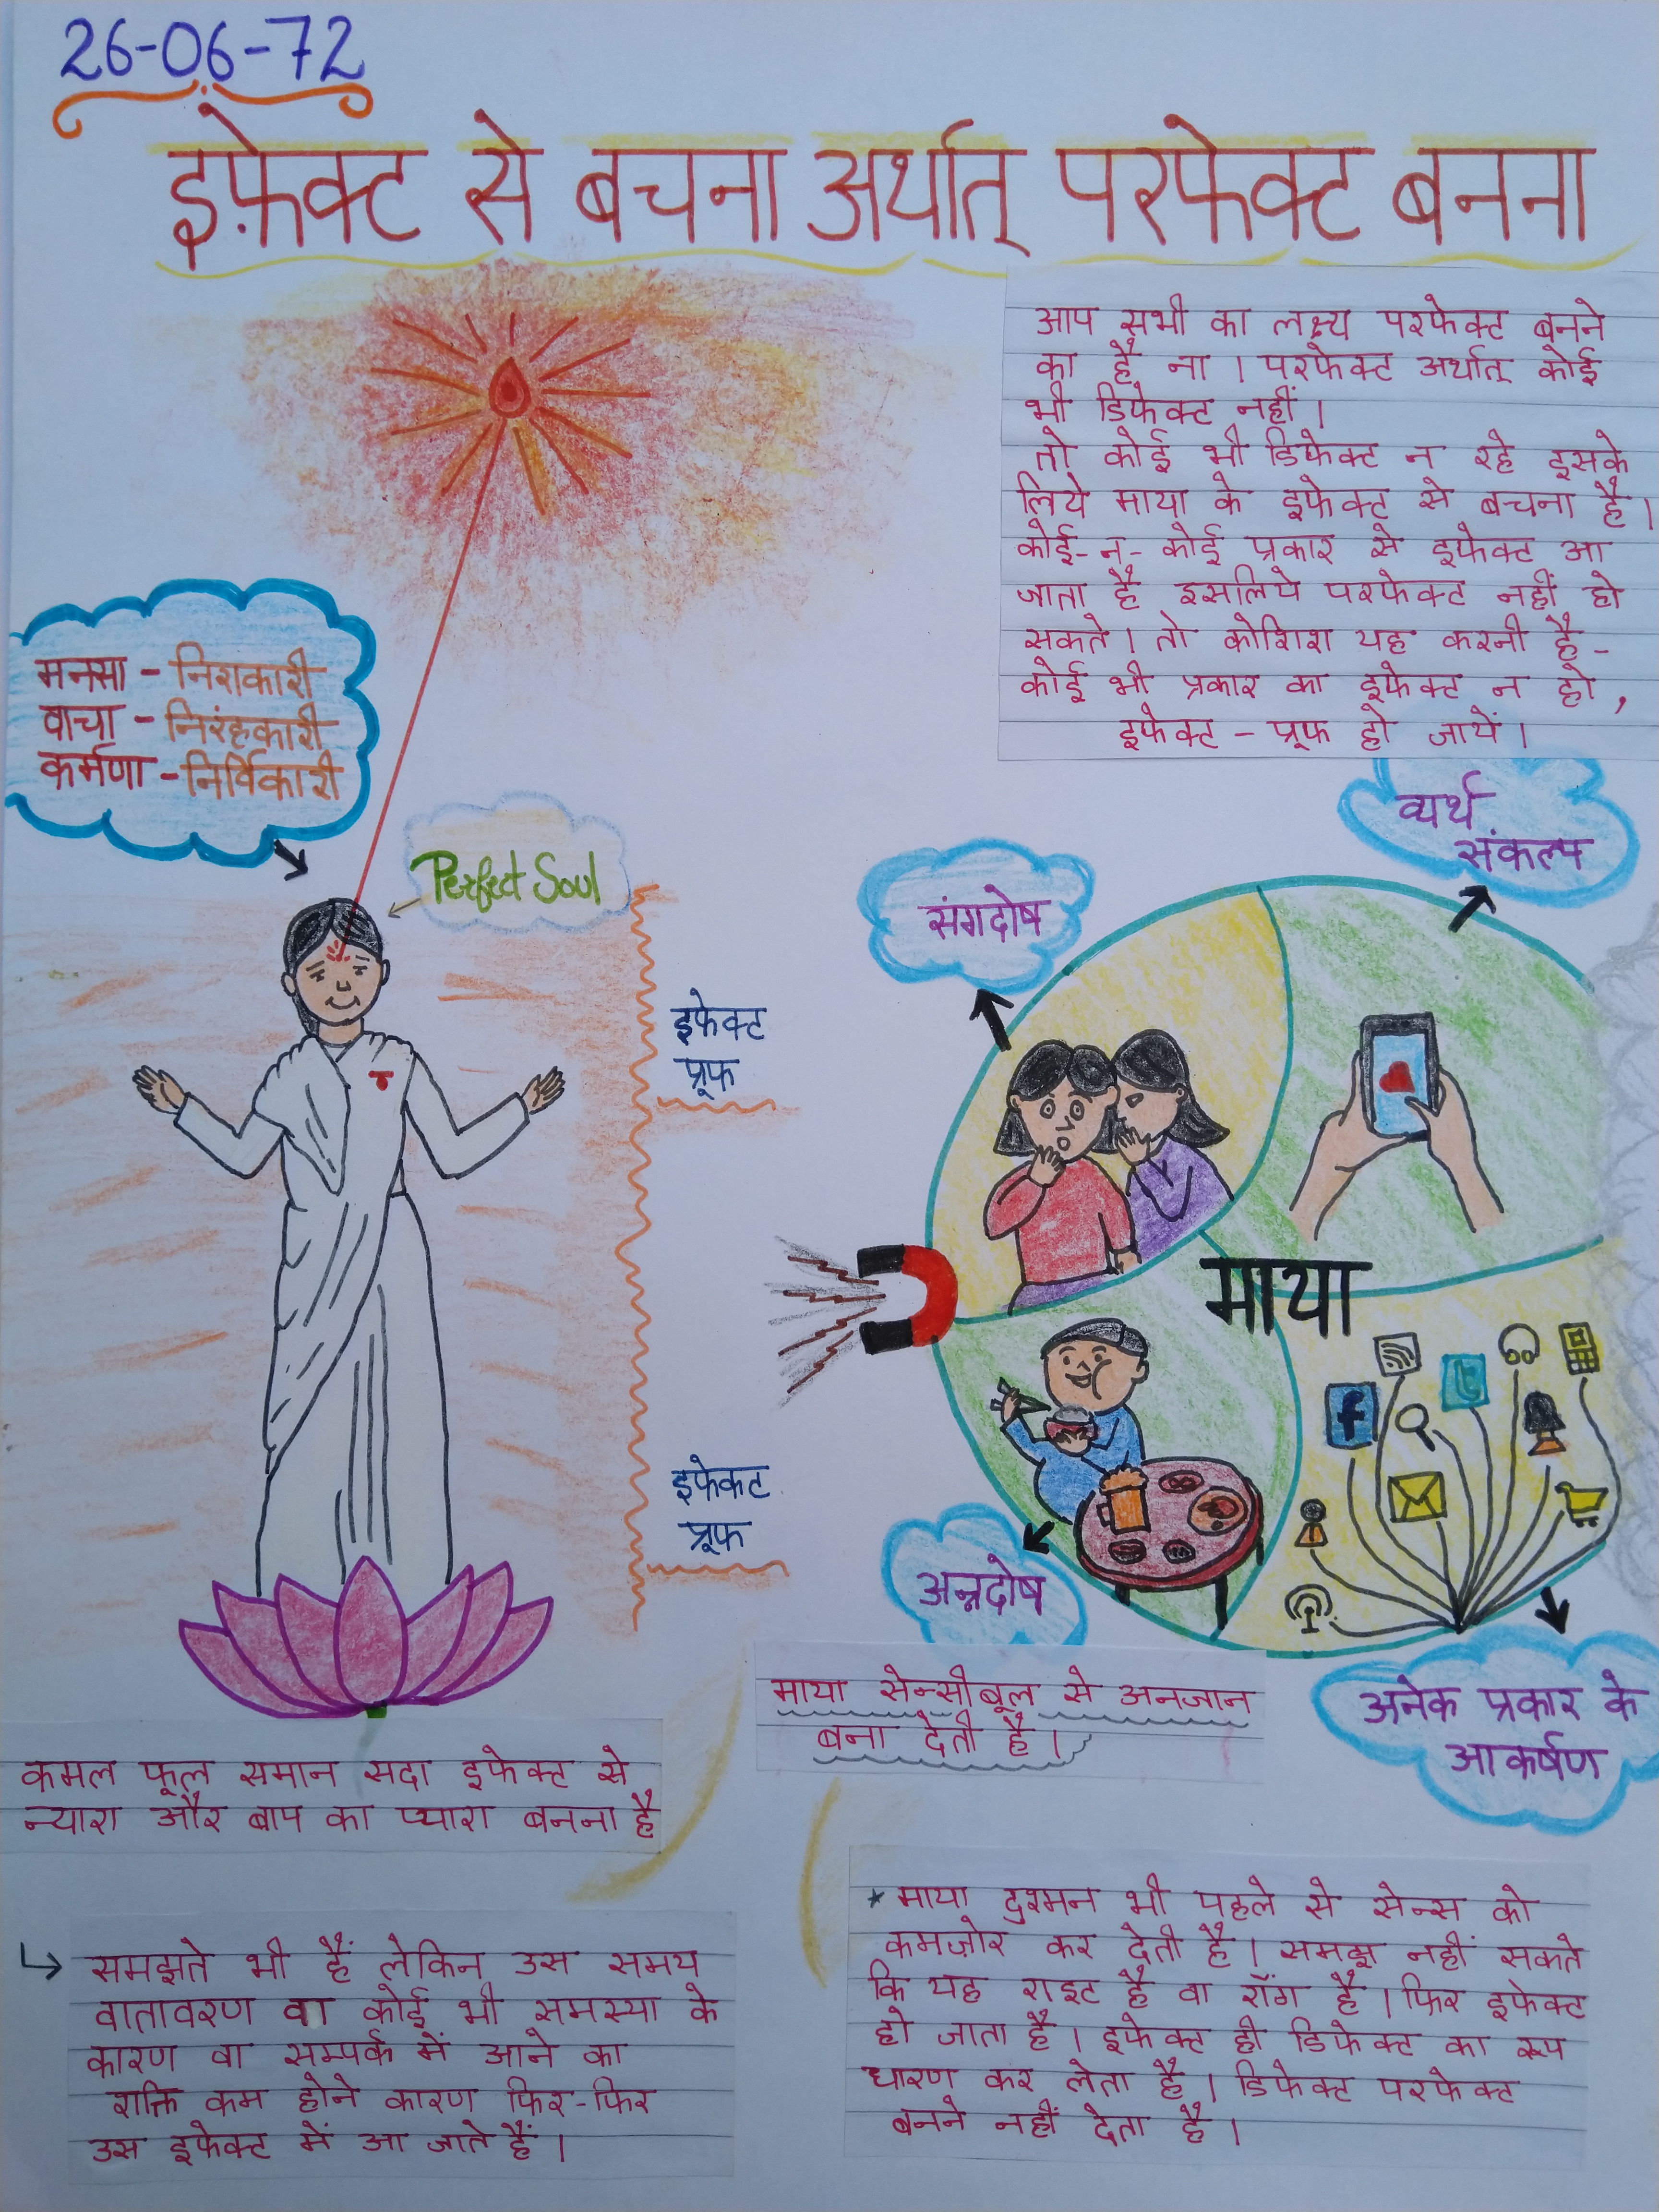 26-06-72
इफ़ेक्ट से बचना अर्थात् परफेक्ट बनना
आप सभी का लक्ष्य परफेक्ट बनने
का है ना । परफेक्ट अर्थात् कोई
भी डिफेक्ट नहीं ।
तो कोई भी डिफेक्ट न रहे इसके
लिये माया के इफेक्ट से बचना है ।
कोई-न-कोई प्रकार से इफेक्ट आ
जाता है इसलिये परफेक्ट नहीं हो
सकते । तो कोशिश यह करनी है -
कोई भी प्रकार का इफेक्ट न हो,
इफेक्ट - प्रूफ हो जायें ।
मनसा - निराकारी
वाचा - निरंहकारी
कर्मणा - निर्विकारी
Perfect Soul
व्यर्थ
संकल्प
संगदोष
इफेक्ट
प्रूफ
माया
f
t
इफेकट
प्रूफ
अन्नदोष
अनेक प्रकार के
आकर्षण
माया सेन्सीबूल से अनजान
बना देती है ।
कमल फूल समान सदा इफेक्ट से
न्यारा और बाप का प्यारा बनना है
* माया दुश्मन भी पहले से सेन्स को
कमजोर कर देती है । समझ नहीं सकते
कि यह राइट है वा रॉंग है । फिर इफेक्ट
हो जाता है । इफेक्ट ही डिफेक्ट का रूप
धारण कर लेता है । डिफेक्ट परफेक्ट
बनने नहीं देता है ।
↳ समझते भी हैं लेकिन उस समय
वातावरण वा कोई भी समस्या के
कारण वा सम्पर्क में आने का
शक्ति कम होने कारण फिर-फिर
उस इफेक्ट में आ जाते हैं ।